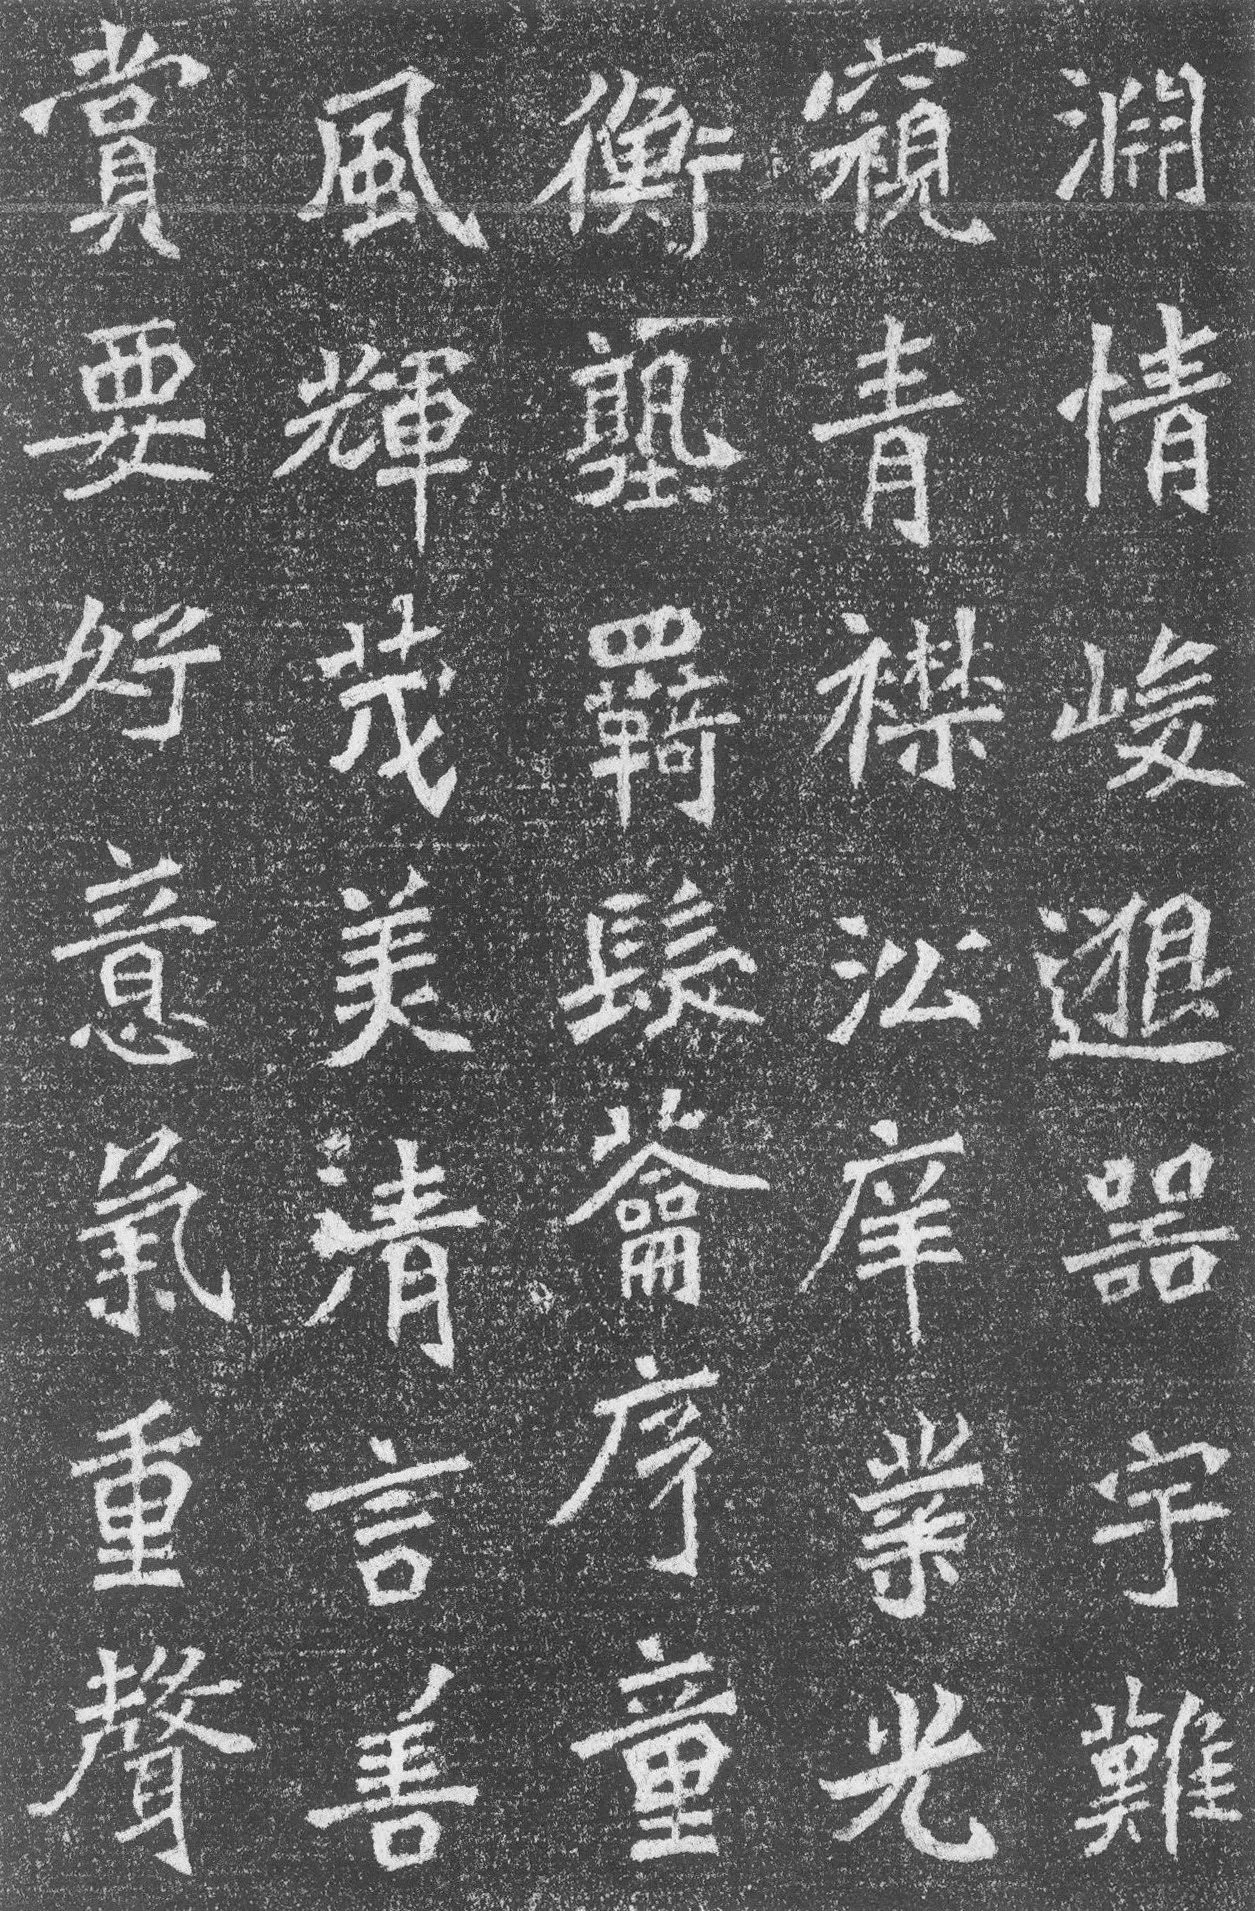 渊情峻邈器宇難
窺青襟㳂庠業光
衡塾羈髮蘥序童
風輝茂美清言善
賞要好意氣重聲